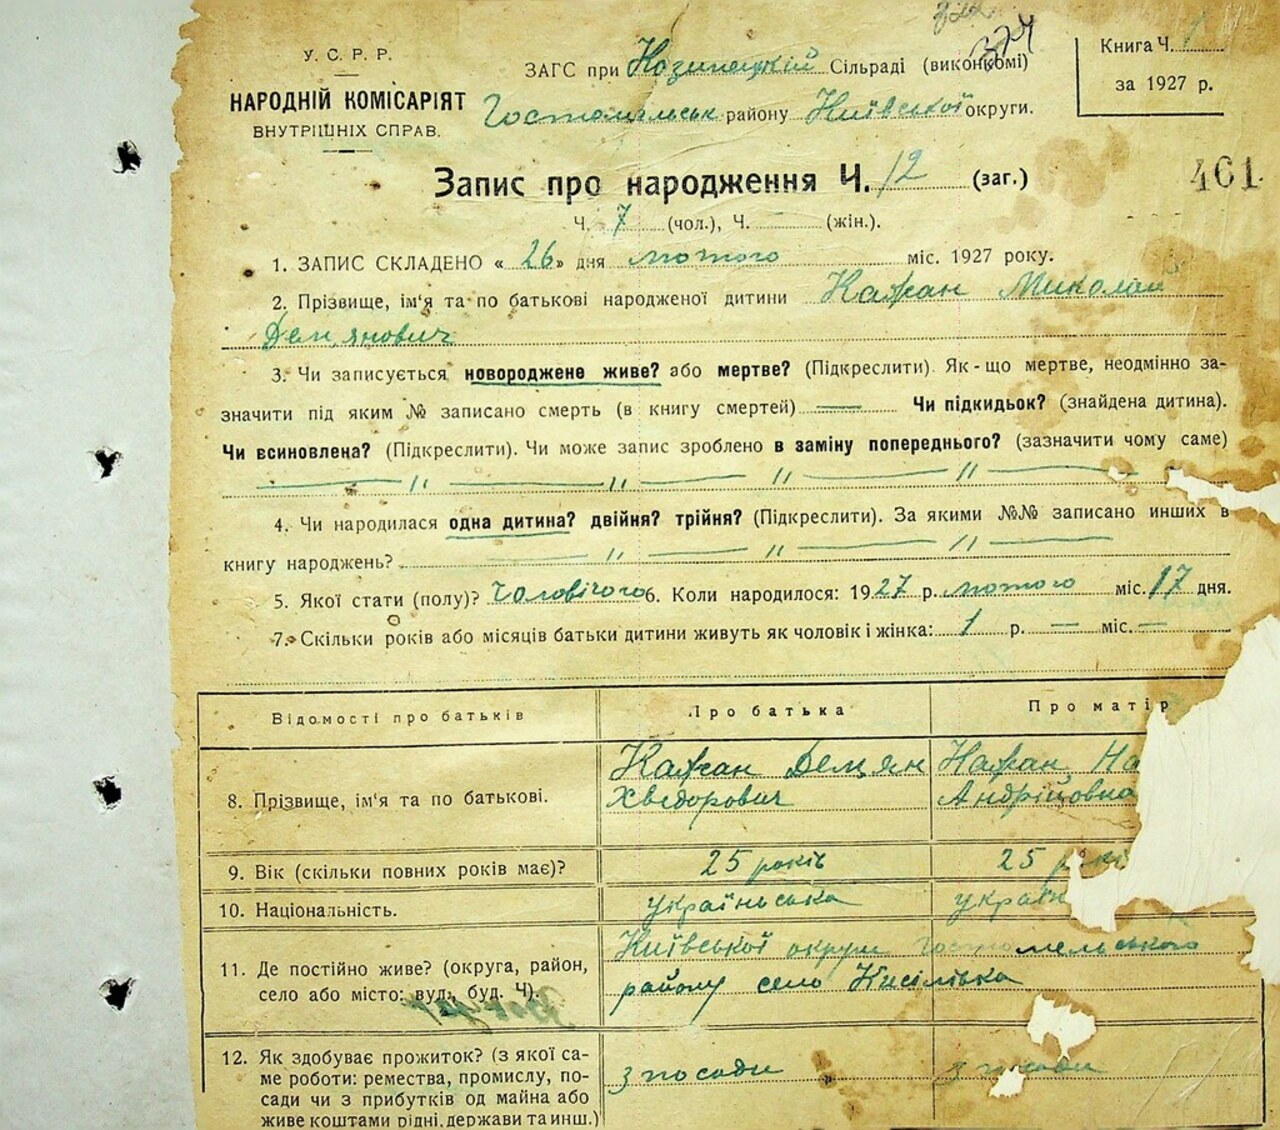 374
У. С. Р. Р.
НАРОДНІЙ КОМІСАРІЯТ
ВНУТРІШНІХ СПРАВ.
ЗАГС при Козинецькій Сільраді (виконкомі)
Гостомельськ району Київської округи.
Книга Ч. 1
за 1927 р.
461
Запис про народження Ч. 12 (заг.)
Ч. 7 (чол.), Ч. (жін.).
1. ЗАПИС СКЛАДЕНО « 26 » дня лютого міс. 1927 року.
2. Прізвище, ім'я та по батькові народженої дитини Кажан Миколай
Дем,янович
3. Чи записується новороджене живе? або мертве? (Підкреслити). Як-що мертве, неодмінно за-
значити під яким № записано смерть (в книгу смертей) — Чи підкидьок? (знайдена дитина).
Чи всиновлена? (Підкреслити). Чи може запис зроблено в заміну попереднього? (зазначити чому саме)
— " — " — " — " —
4. Чи народилася одна дитина? двійня? трійня? (Підкреслити). За якими №№ записано инших в
книгу народжень? — " — " — " —
5. Якої стати (полу)? Чоловічого 6. Коли народилося: 1927 р. лютого міс. 17 дня.
7. Скільки років або місяців батьки дитини живуть як чоловік і жінка: 1 р. — міс. —
Відомості про батьків Про батька Про матір
8. Прізвище, ім'я та по батькові. Кажан Демян Кажан На
Хведорович Андрійовна
9. Вік (скільки повних років має)? 25 років 25 рокі
10. Національність. українська україн
11. Де постійно живе? (округа, район,
село або місто: вул., буд. Ч).
Київської округи Гостомельського
району село Кисілівка
12. Як здобуває прожиток? (з якої са-
ме роботи: ремества, промислу, по-
сади чи з прибутків од майна або
живе коштами рідні, держави та инш.)
з посади з посади